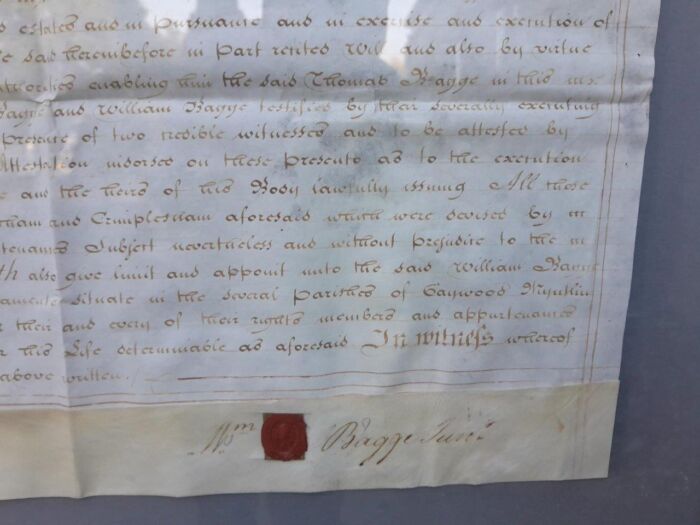 s estates and in pursuance and in exercise and execution of
said hereinbefore in part recited Will and also by virtue
authorities enabling him the said Thomas Bagge in this
Bagge and William Bagge testified by their severally executing
presence of two credible witnesses and to be attested by
Attestation indorsed on these presents as to the execution
and the heirs of his Body lawfully issuing All those
tham and Crimplesham aforesaid which were devised by
tenances Subject nevertheless and without prejudice to the
th also give limit and appoint unto the said William Bagge
situate in the several Parishes of Gaywood
their and every of their rights members and appurtenances
his Life determinable as aforesaid In witness whereof
above written.
Wm Bagge Junr